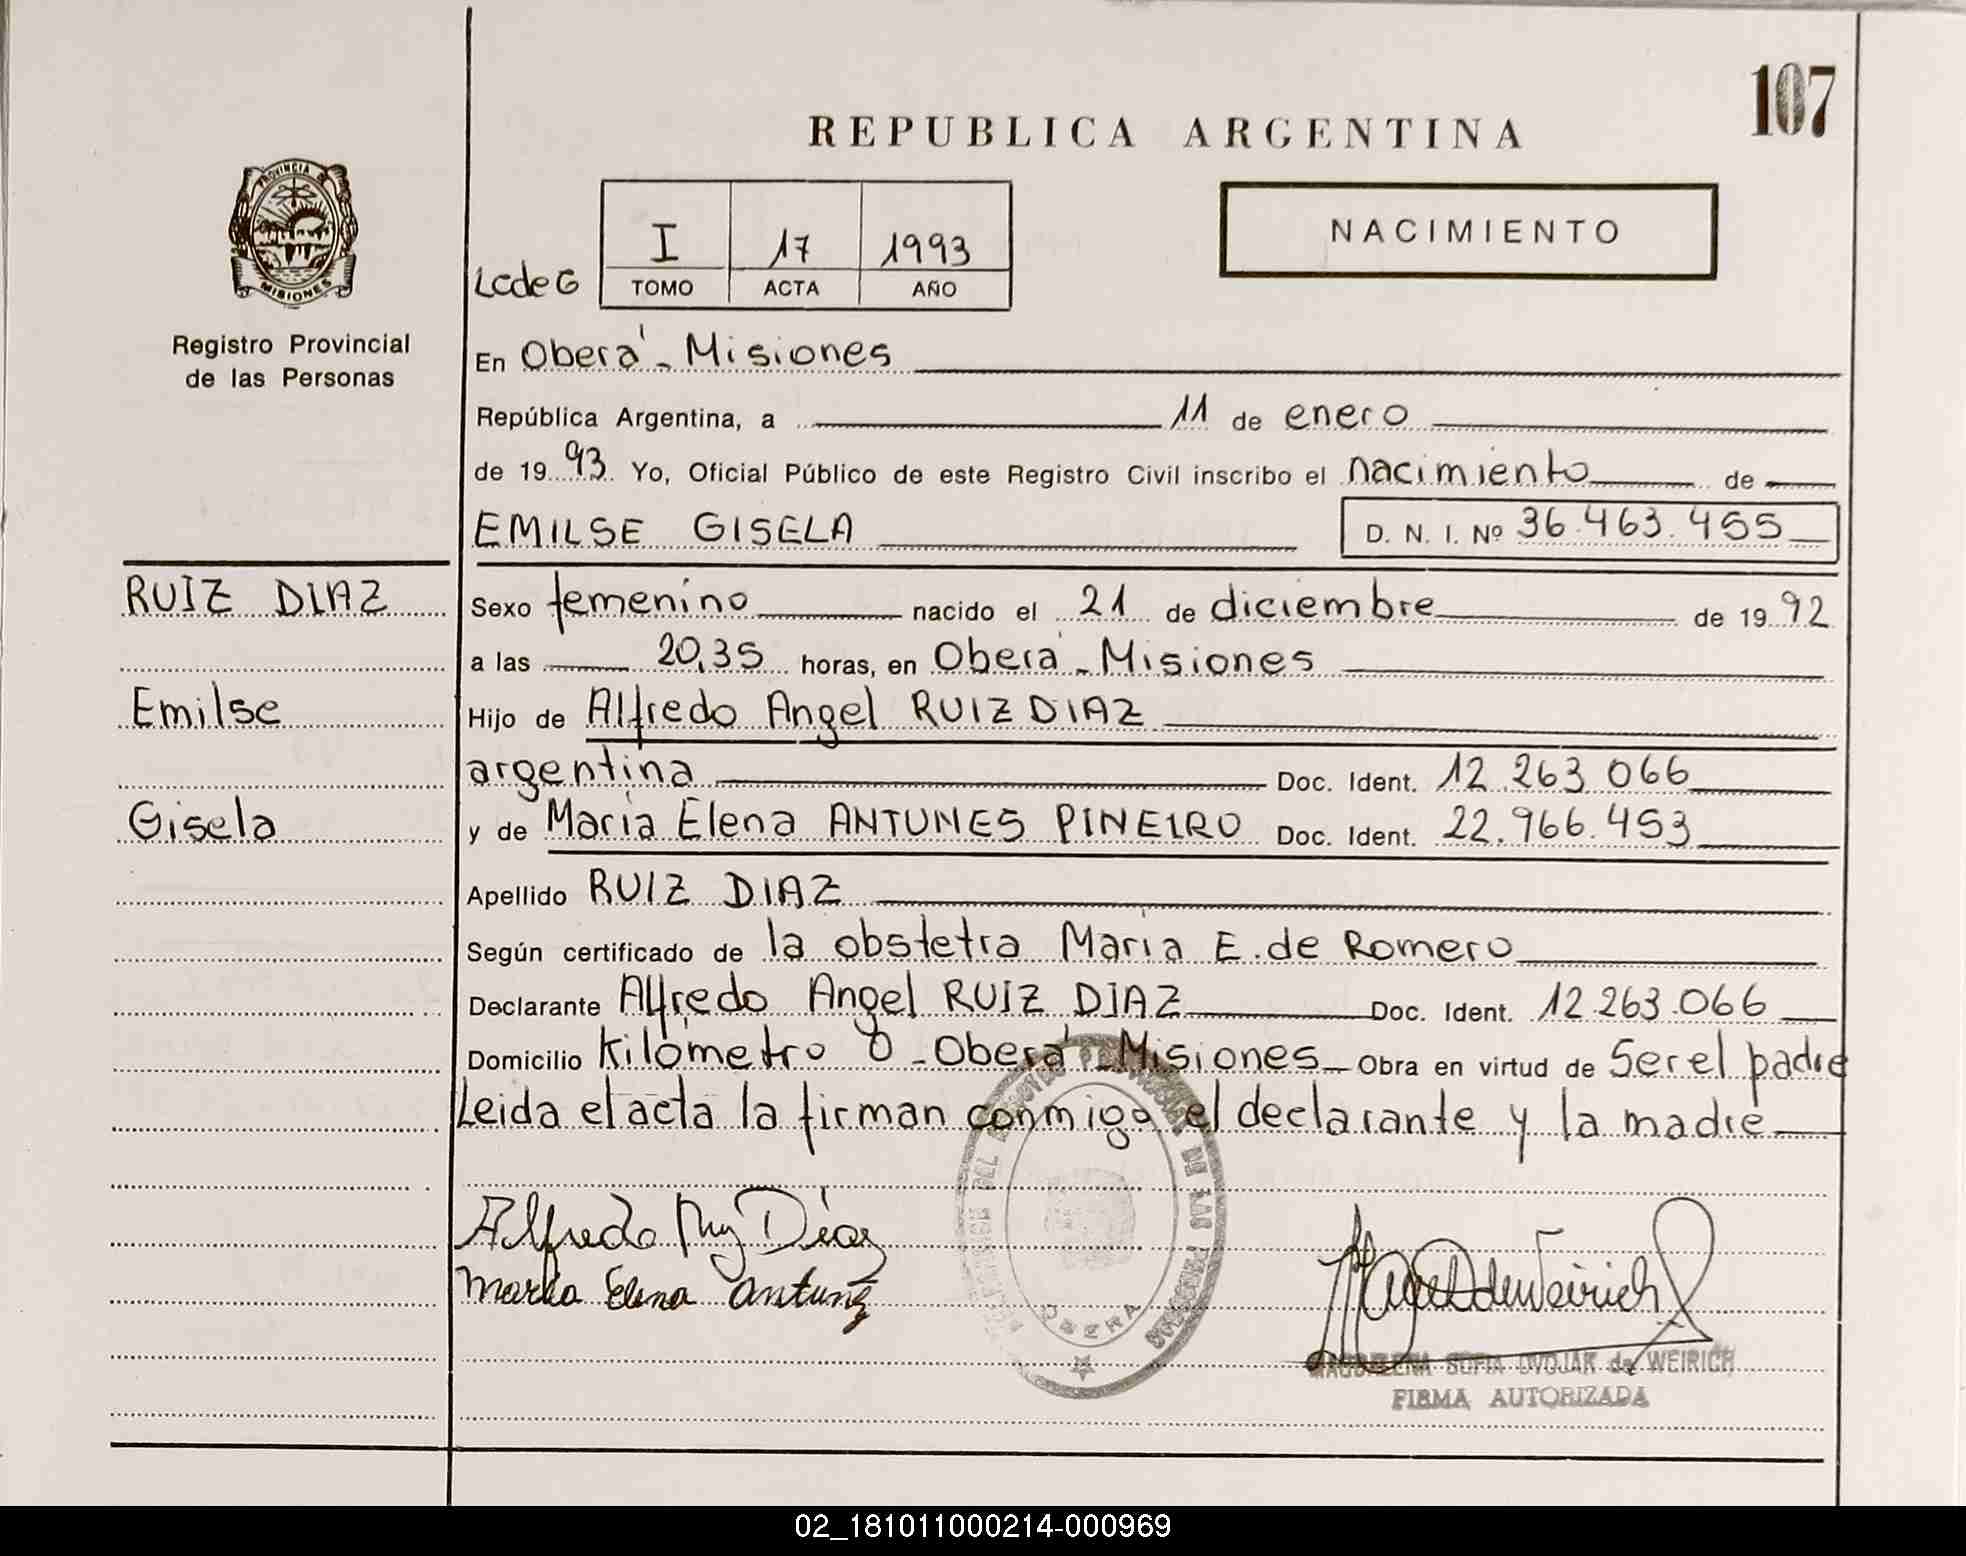 107
REPUBLICA ARGENTINA
PROVINCIA DE
MISIONES
Registro Provincial
de las Personas
NACIMIENTO
LcdeG
I 17 1993
TOMO ACTA AÑO
En Oberá - Misiones
República Argentina, a 11 de enero
de 1993 Yo, Oficial Público de este Registro Civil inscribo el nacimiento de
EMILSE GISELA D. N. I. Nº 36.463.455
RUIZ DIAZ
Emilse
Gisela
Sexo femenino nacido el 21 de diciembre de 1992
a las 20,35 horas, en Oberá - Misiones
Hijo de Alfredo Angel RUIZ DIAZ
argentina Doc. Ident. 12.263.066
y de María Elena ANTUNES PINEIRO Doc. Ident. 22.966.453
Apellido RUIZ DIAZ
Según certificado de la obstetra María E. de Romero
Declarante Alfredo Angel RUIZ DIAZ Doc. Ident. 12.263.066
Domicilio Kilómetro 8 - Oberá - Misiones Obra en virtud de Ser el padre
Leida el acta la firman conmigo el declarante y la madre
Alfredo Ruiz Diaz
Maria Elena Antunez
DEL DE LAS PERSONAS
OBERA
MAGDALENA SOFIA DVOJAK de WEIRICH
FIRMA AUTORIZADA
02_181011000214-000969